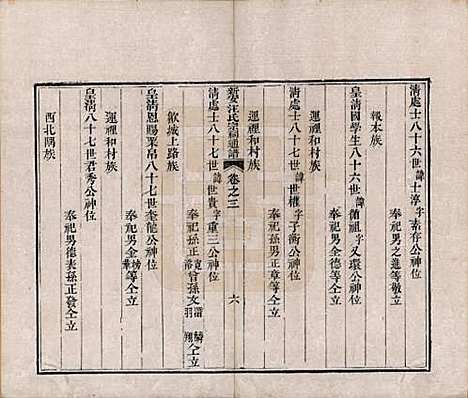 清處士八十六世諱士淳字素存公神位
奉祀男之進等敬立
報本族
皇清國學生八十六世諱蘭旭字又還公神位
奉祀男全德等仝立
運裡和村族
清處士八十七世諱世權字子衡公神位
奉祀孫男正章等仝立
運裡和村族
新安汪氏宗祠通譜 卷之三 六
清處士八十七世諱世貴字重三公神位
奉祀孫正寬裕曾孫文謂羽麟翔仝立
歙城上路族
皇清恩賜粟帛八十七世奎龍公神位
奉祀男金榜華等仝立
運裡和村族
皇清八十七世君秀公神位
奉祀男德表孫正發仝立
西北隅族